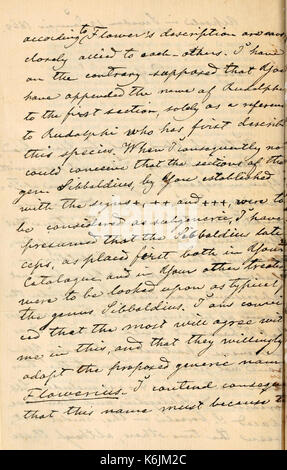 according to Flower's description are very
closely allied to each-others. I have
on the contrary supposed that You
have appended the name of Rudolphi
to the first section, solely as a reference
to Rudolphi who has first describ
this species. When I consequently no
could conceive that the sections of the
gen. Sibbaldius, by You established
with the signs +, ++ and +++, were to
be considered as subgeneric, I have
presumed that the Sibbaldius lati
ceps, as placed first both in Your
Catalogue and in Your other treatis
were to be looked upon as typical
the genus Sibbaldius. I am convin
ced that the most will agree wit
me in this, and that they willingly
adopt the proposed generic name
Flowerius. I contend conseque
that this name must because t
alamy
alamy
Image ID: K6JM2C
www.alamy.com